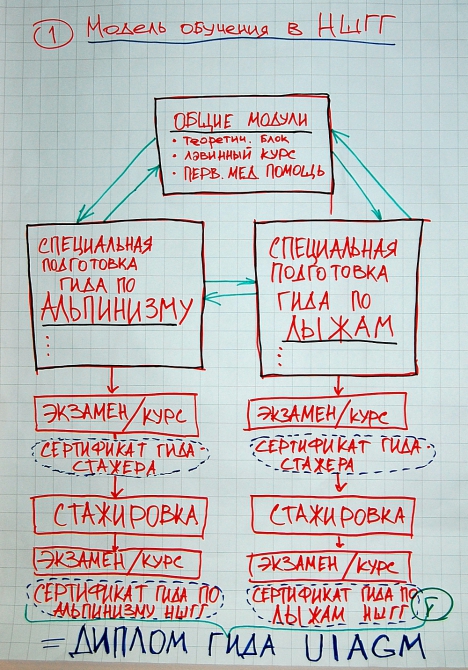 1 Модель обучения в НШГГ
ОБЩИЕ МОДУЛИ
• теоретич. блок
• лавинный курс
• перв. мед. помощь
СПЕЦИАЛЬНАЯ
ПОДГОТОВКА
ГИДА ПО
АЛЬПИНИЗМУ
СПЕЦИАЛЬНАЯ
ПОДГОТОВКА
ГИДА ПО
ЛЫЖАМ
ЭКЗАМЕН/КУРС
СЕРТИФИКАТ ГИДА-
СТАЖЕРА
СТАЖИРОВКА
ЭКЗАМЕН/КУРС
СЕРТИФИКАТ ГИДА ПО
АЛЬПИНИЗМУ НШГГ
ЭКЗАМЕН/КУРС
СЕРТИФИКАТ ГИДА-
СТАЖЕРА
СТАЖИРОВКА
ЭКЗАМЕН/КУРС
СЕРТИФИКАТ ГИДА ПО
ЛЫЖАМ НШГГ
= ДИПЛОМ ГИДА UIAGM